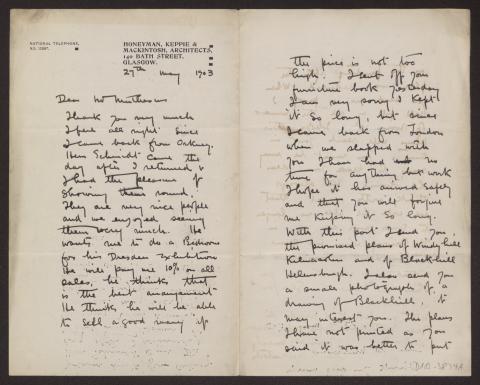 NATIONAL TELEPHONE,
HONEYMAN, KEPPIE &
MACKINTOSH, ARCHITECTS,
140 BATH STREET,
GLASGOW.
27th May 1903
Dear Mr Muthesius
Thank you very much
I feel all right since
I came back from Orkney.
Herr Schmidt came the
day after I returned, &
I had the pleasure of
showing them round.
They are very nice people
and we enjoyed seeing
them very much. He
wants me to do a Bedroom
for his Dresden Exhibition
He will pay me 10% on all
sales, he thinks that
is the best arrangement
He thinks he will be able
to sell a good many if
the price is not too
high. I sent off your
furniture book yesterday
I am very sorry I kept
it so long, but since
I came back from London
when we stopped with
you I have had no
time for anything but work
I hope it has arrived safely
and that you will forgive
me keeping it so long.
With this post I send you
the promised plans of Windyhill
Kilmacolm and of Blackhill
Helensburgh. I also send you
a small photograph of a
drawing of Blackhill, it
may interest you. The plans
I have not printed as you
said it was better to put